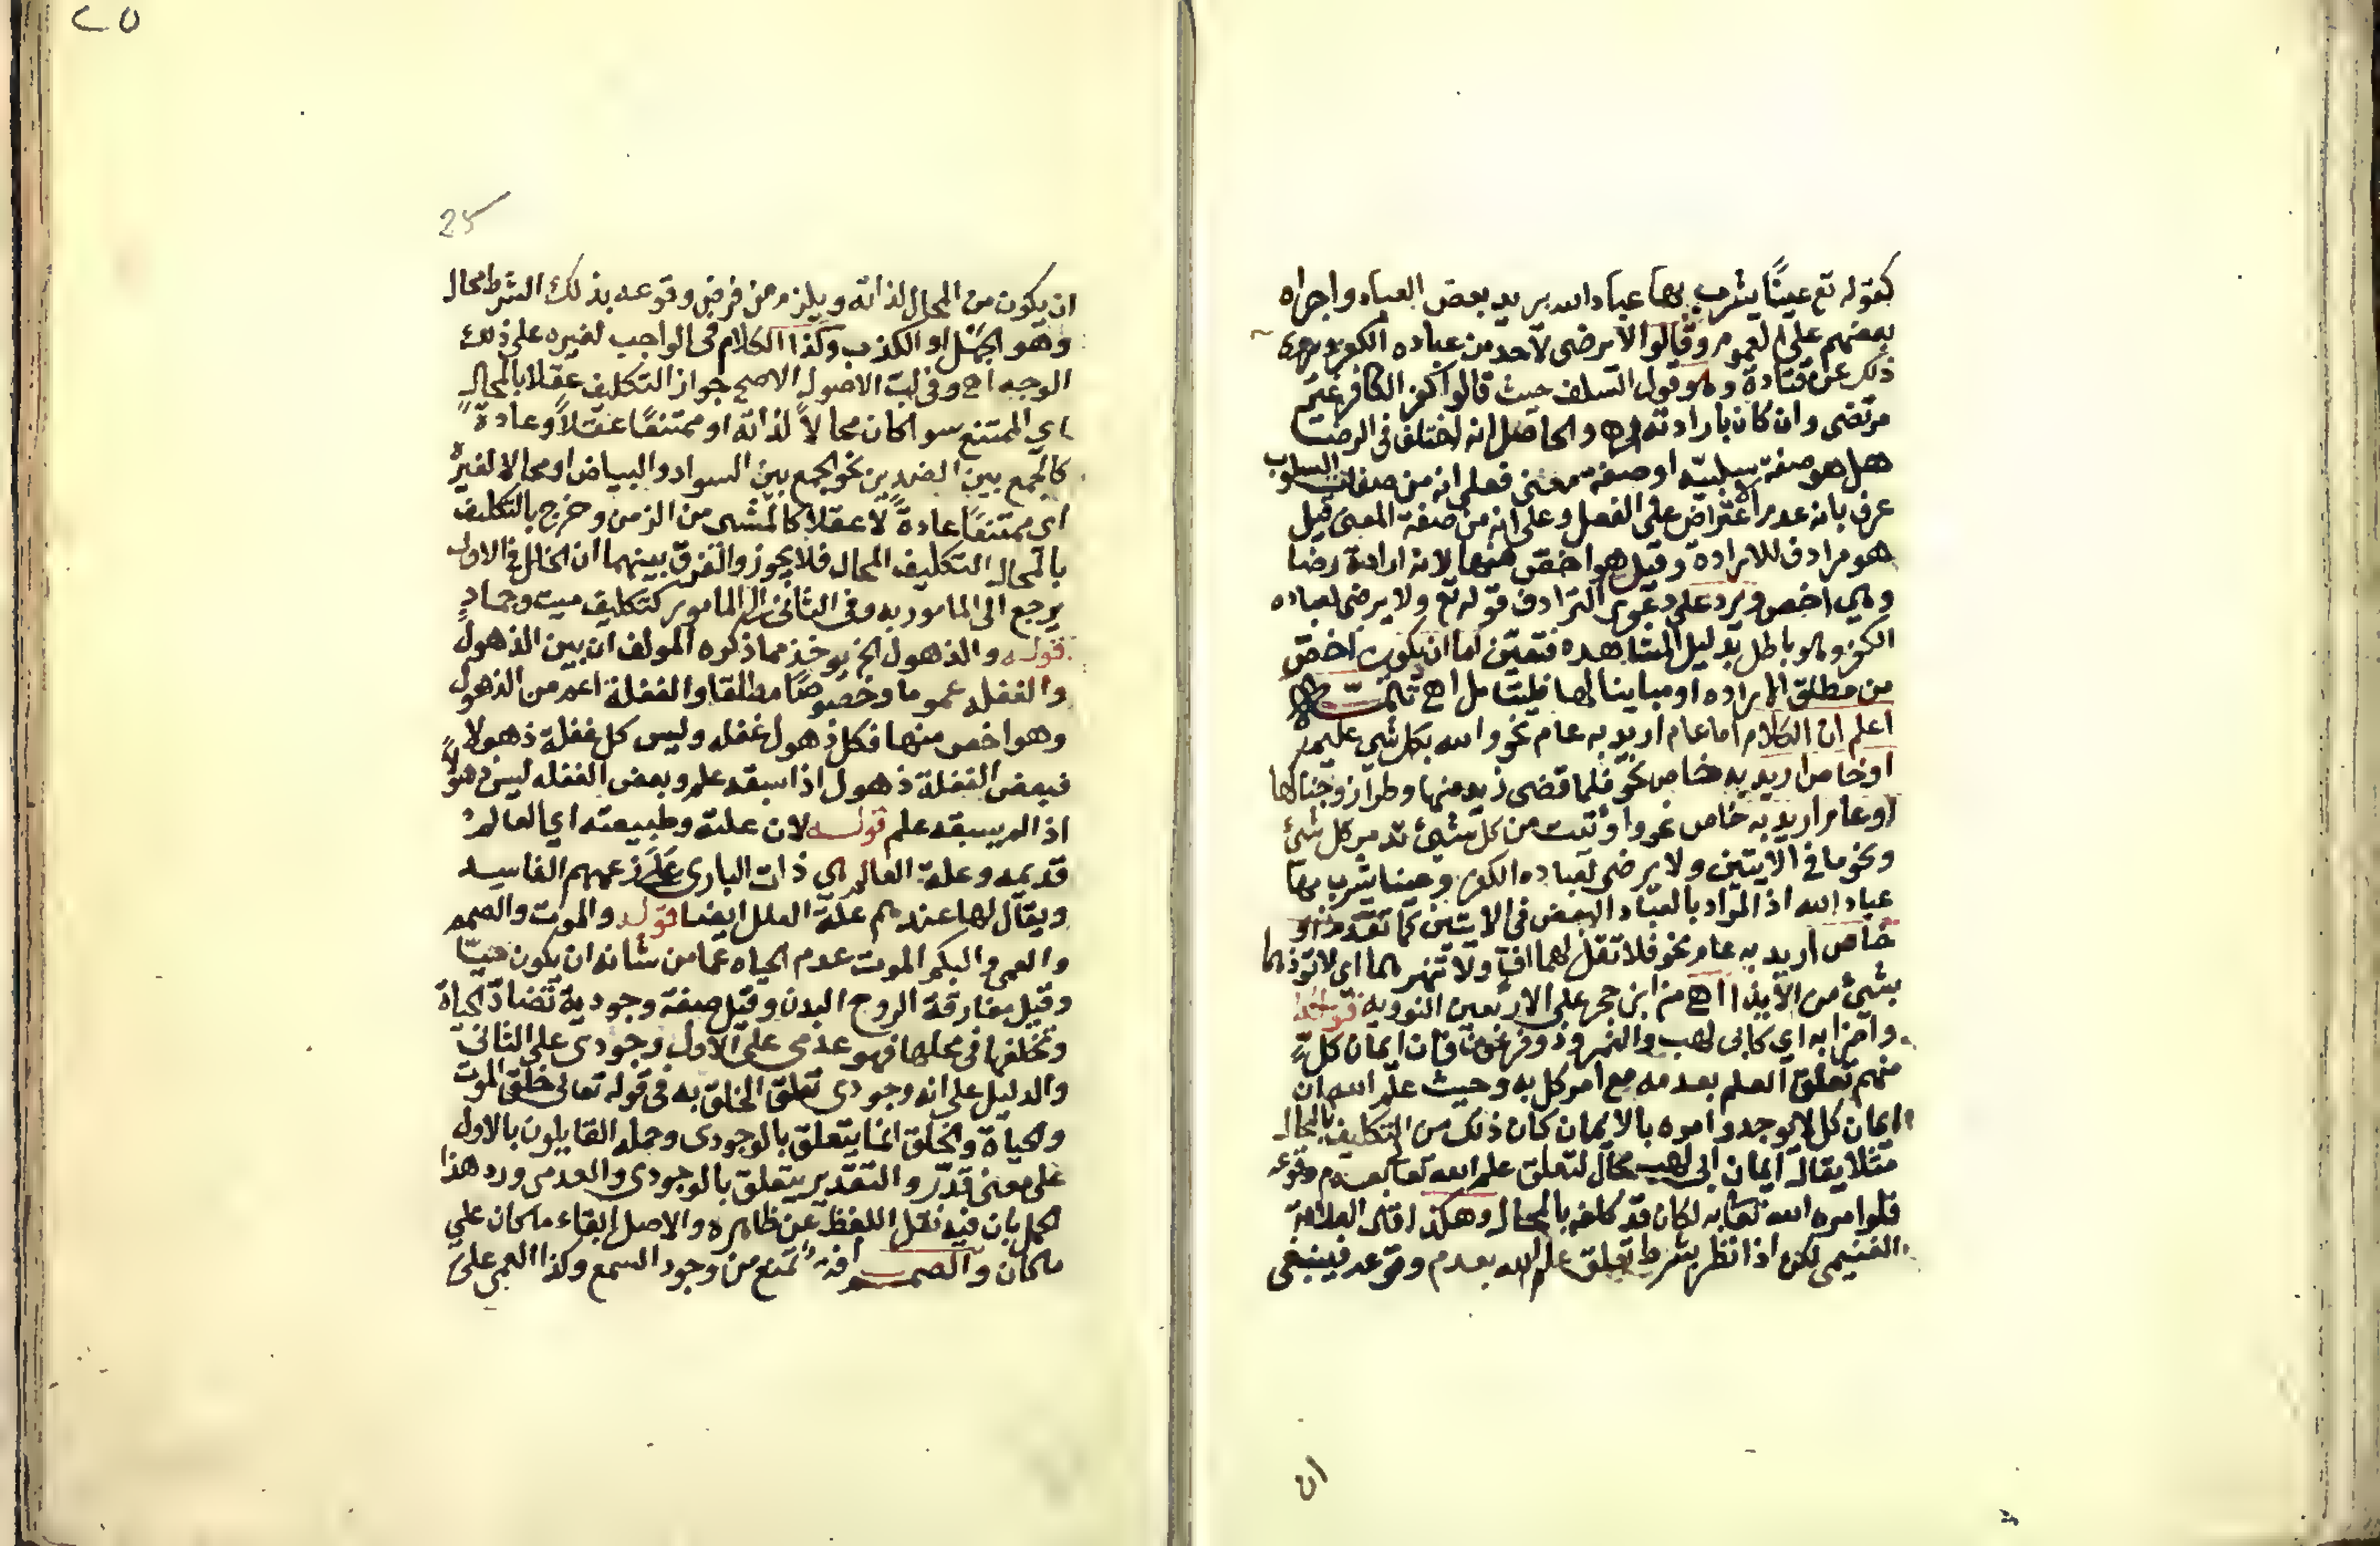 كقوله تع عينًا يشرب بها عباد الله يريد بعض العباد واجراه
بعضهم على العموم وقالوا لا يرضى لاحد من عباده الكفر
ذلك عن قتادة وهو قول السلف حيث قالوا كفر الكافر غير
مرتضى وان كان بارادته اه والحاصل انه اختلف في الرضى
هل هو صفة سلبية او صفة معنى فعلى انه من صفات السلوب
عرف بانه عدم الاعتراض على الفعل وعلى انه من صفة المعنى قيل
هو مرادف للارادة وقيل هو اخص منها لانه ارادة رضا
وهي اخص ويرد على دعوى الترادف قوله تع ولا يرضى لعباده
الكفر وهو باطل بدليل المشاهده فتعين اما ان يكون اخص
من مطلق الاراده او مباينا لها فليتامل اه
اعلم ان الكلام اما عام اريد به عام نحو والله بكل شي عليم
او خاص اريد به خاص نحو فلما قضى زيد منها وطرا زوجناكها
او عام اريد به خاص نحو واوتيت من كل شيئ تدمر كل شئ
ونحو ما في الايتين ولا يرضى لعباده الكفر وعينا يشرب بها
عباد الله اذ المراد بالعباد البعض في الايتين كما تقدم او
خاص اريد به عام نحو فلا تقل لهما اف ولا تنهرهما اي لا توذهما
بشئ من الايذا اه من ابن حجر على الاربعين النوويه قوله
واضرابه اي كابي لهب والنمروذ وفرعون فان ايمان كل
منهم تعلق العلم بعدمه مع امر كل به وحيث علم الله ان
ايمان كل لا يوجد وامره بالايمان كان ذلك من التكليف بالمحال
مثلا يقال ايمان ابي لهب محال لتعلق علم الله تعا بعدم وقوعه
فلو امره الله تعا به لكان قد كلفه بالمحال وهكذا قال العلامة
الغنيمي لكن اذا نظر بشرط تعلق علم الله بعدم وقوعه فينبغي
ان
٢٥
25
ان يكون من المحال لذاته ويلزم من فرض وقوعه بذلك الشرط محال
وهو الجهل او الكذب وكذا الكلام في الواجب لغيره على ذلك
الوجه اه وفي لب الاصول الاصح جواز التكليف عقلا بالمحال
اي الممتنع سوا كان محالاً لذاته او ممتنعًا عقلاً وعادةً
كالجمع بين الضدين نحو الجمع بين السواد والبياض او محالا لغيره
اي ممتنعًا عادةً لا عقلا كالمشى من الزمن وخرج بالتكليف
بالمحال التكليف المحال فلا يجوز والفرق بينهما ان الخلل في الاول
يرجع الى المامور به وفي الثاني الى المامور كتكليف ميت وجمادٍ
قوله والذهول الخ يوخذ مما ذكره المولف ان بين الذهول
والغفله عموما وخصوصًا مطلقا والغفلة اعم من الذهول
وهو اخص منها فكل ذهول غفله وليس كل غفلة ذهولا
فبعض الغفلة ذهول اذا سبقه علم وبعض الغفله ليس ذهولاً
اذا لم يسبقه علم قوله لان علته وطبيعته اي العالم
قديمه وعلة العالم هي ذات الباري على زعمهم الفاسد
ويقال لها عندهم علة العلل ايضا قوله والموت والصمم
والعمى والبكم الموت عدم الحياه عما من شانه ان يكون حيّا
وقيل مفارقة الروح البدن وقيل صفة وجودية تضاد الحياة
وتخلفها في محلها فهو عدمى على الاول وجودي على الثاني
والدليل على انه وجودي تعلق الخلق به في قوله تعالى خلق الموت
والحياة والخلق انما يتعلق بالوجودى وحمله القايلون بالاول
على معنى قدّر والتقدير يتعلق بالوجودي والعدمي ورد هذا
الحمل بان فيه نقل اللفظ عن ظاهره والاصل ابقاء ما كان على
ما كان والصمم افة تمنع من وجود السمع وكذا العمي على